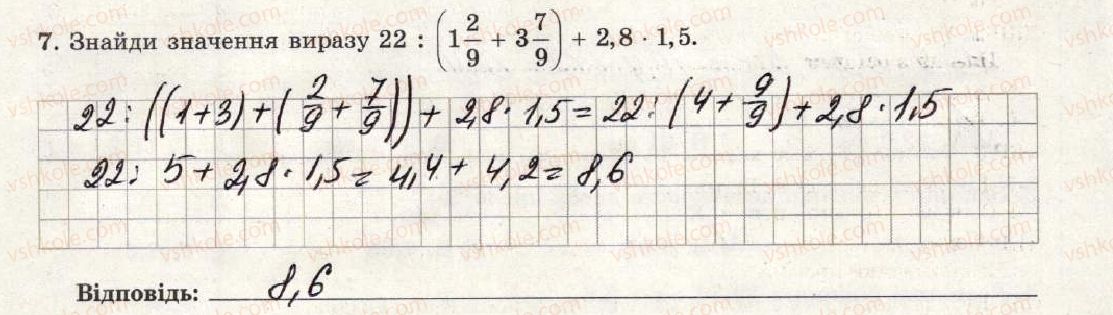 7. Знайди значення виразу 22 : (1 2/9 + 3 7/9) + 2,8 · 1,5.
22: ((1+3) + (2/9 + 7/9)) + 2,8 · 1,5 = 22: (4 + 9/9) + 2,8 · 1,5
22: 5 + 2,8 · 1,5 = 4,4 + 4,2 = 8,6
Відповідь: 8,6